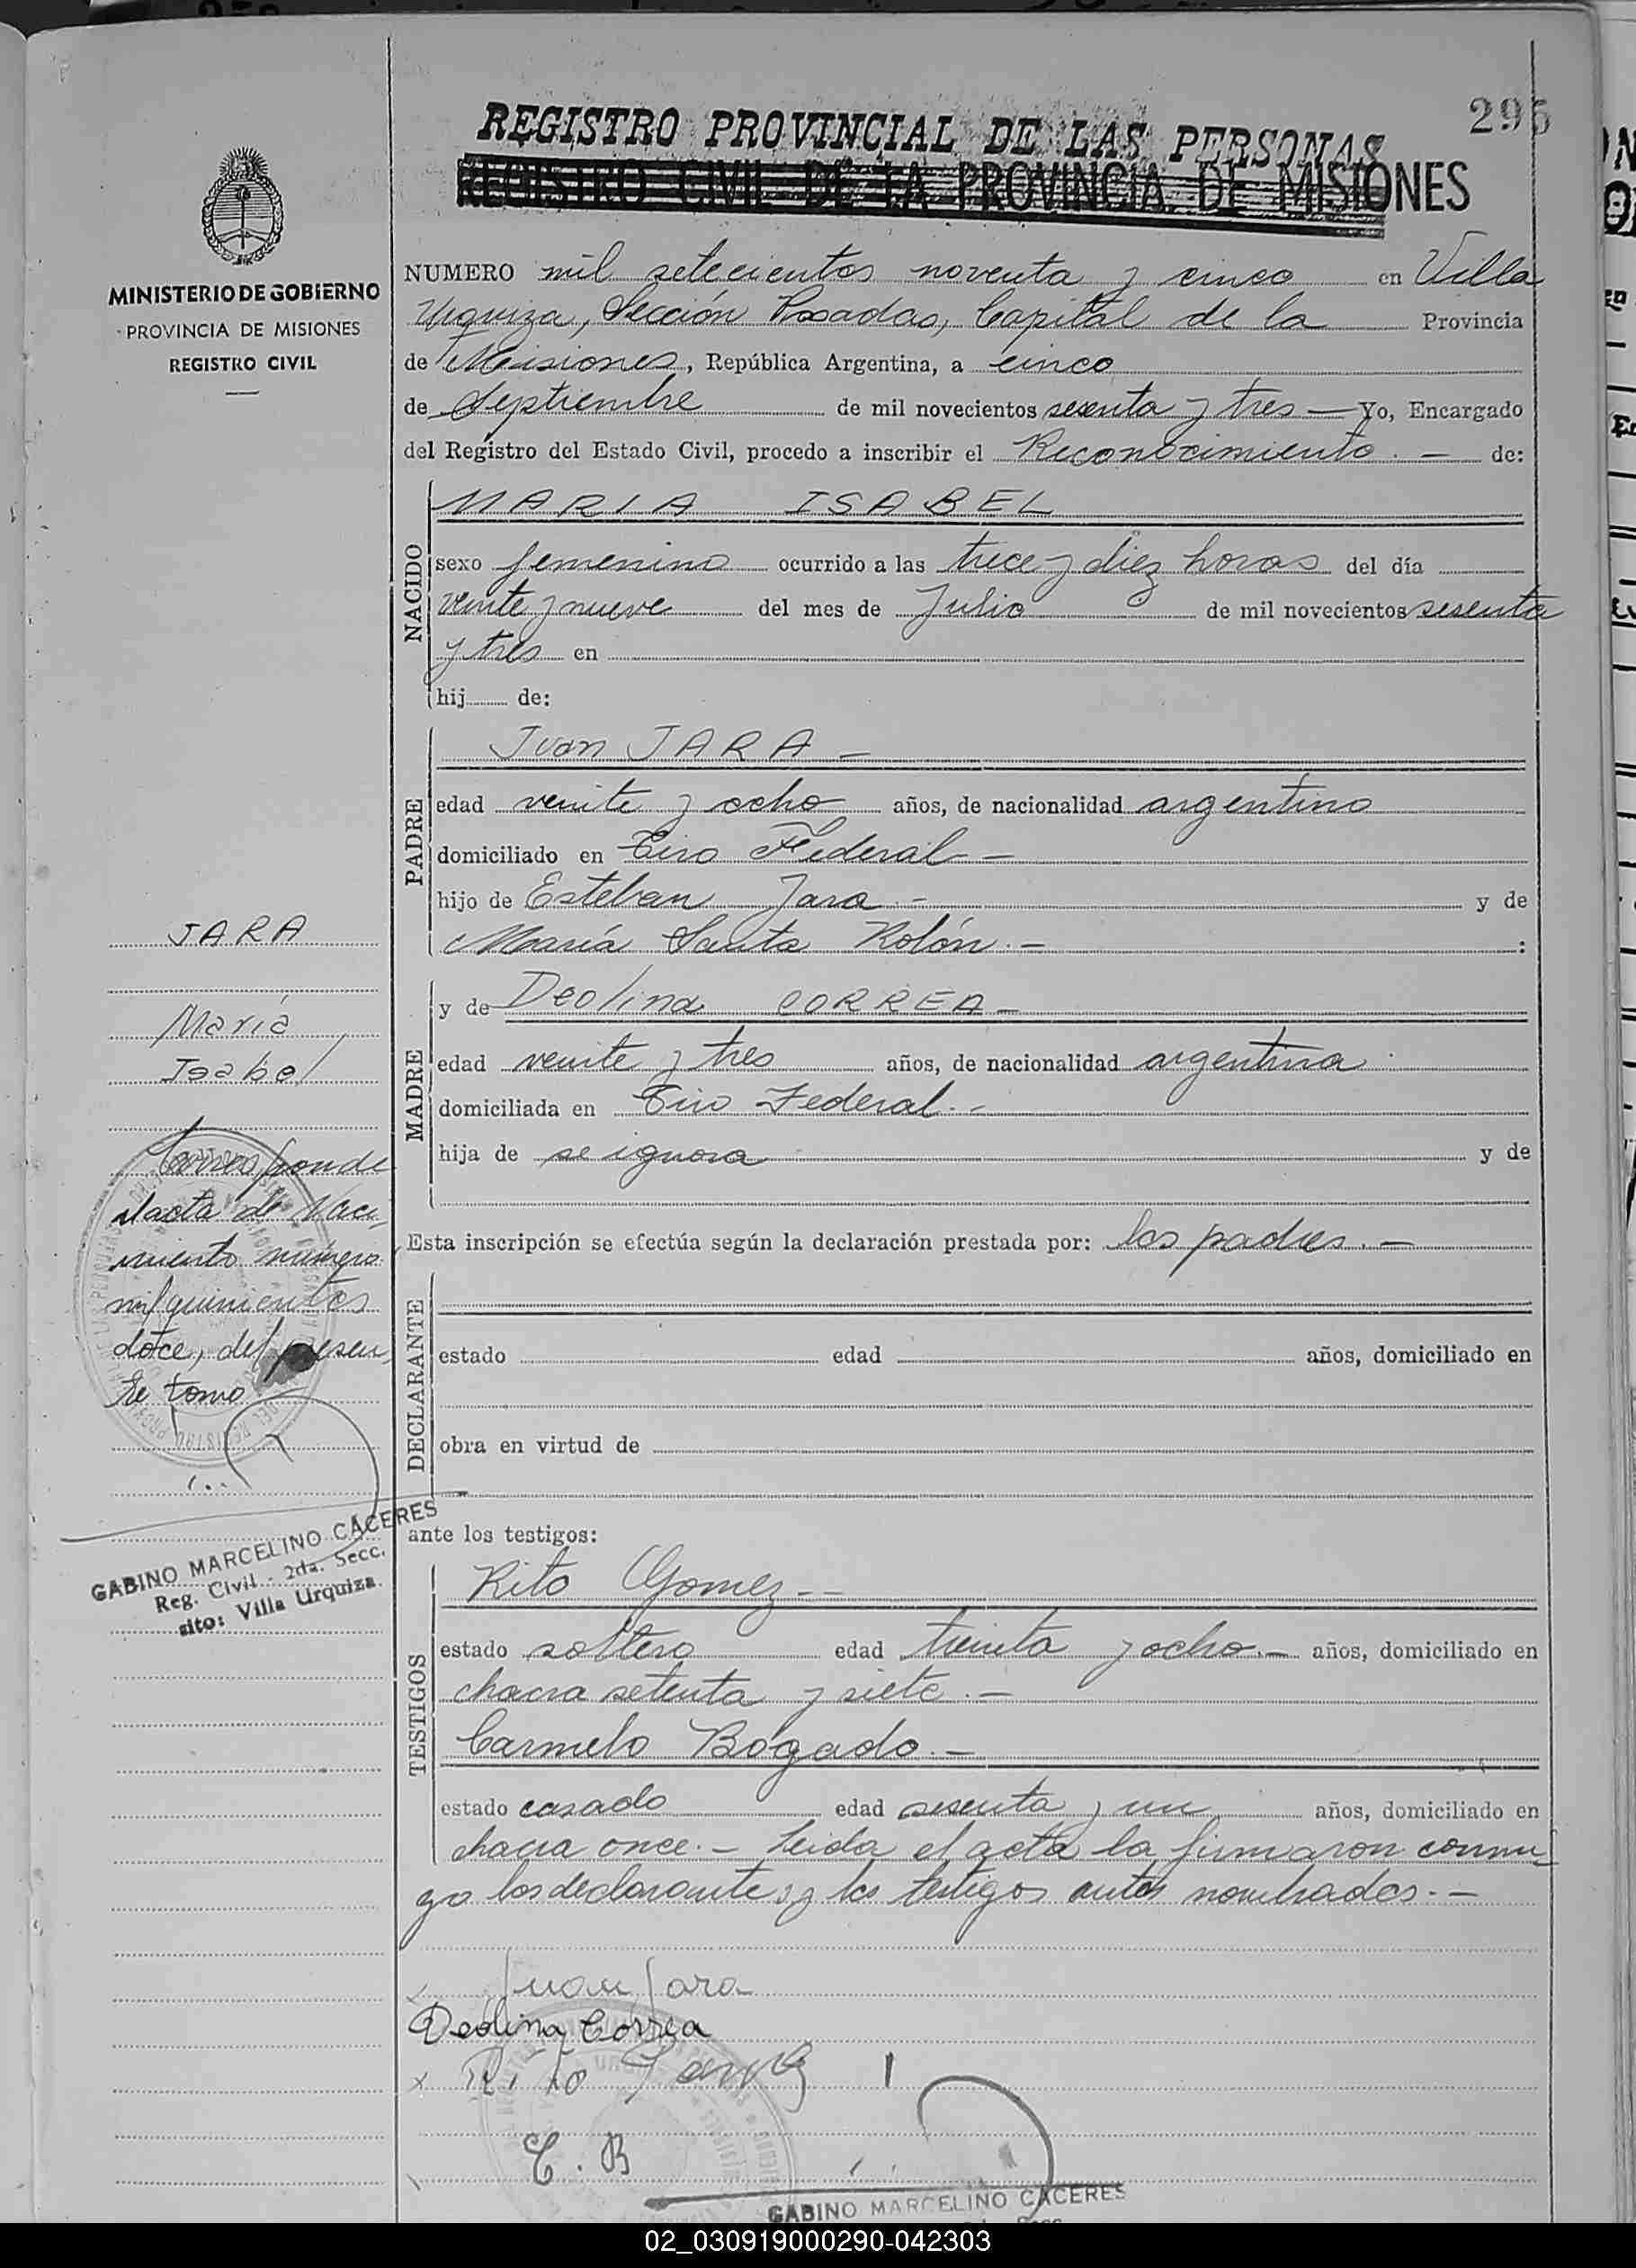 295
REGISTRO PROVINCIAL DE LAS PERSONAS
REGISTRO CIVIL DE LA PROVINCIA DE MISIONES
MINISTERIO DE GOBIERNO
PROVINCIA DE MISIONES
REGISTRO CIVIL
NUMERO mil setecientos noventa y cinco en Villa
Urquiza, Sección Posadas, Capital de la Provincia
de Misiones, República Argentina, a cinco
de Septiembre de mil novecientos sesenta y tres — Yo, Encargado
del Registro del Estado Civil, procedo a inscribir el Reconocimiento. — de:
NACIDO
MARIA ISABEL
sexo femenino ocurrido a las trece y diez horas del día
veinte y nueve del mes de Julio de mil novecientos sesenta
y tres en
hij de:
PADRE
Juan JARA —
edad veinte y ocho años, de nacionalidad argentino
domiciliado en Tiro Federal —
hijo de Esteban Jara - y de
María Santa Rolón. — :
MADRE
y de Deolina CORREA —
edad veinte y tres años, de nacionalidad argentina
domiciliada en Tiro Federal. -
hija de se ignora y de
Esta inscripción se efectúa según la declaración prestada por: los padres. —
DECLARANTE
estado edad años, domiciliado en
obra en virtud de
ante los testigos:
TESTIGOS
Rito Gomez --
estado soltero edad treinta y ocho. — años, domiciliado en
chacra setenta y siete. —
Carmelo Bogado. —
estado casado edad sesenta y un años, domiciliado en
chacra once. — Leida el acta la firmaron conmi-
go los declarantes y los testigos antes nombrados. —
JARA
María
Isabel
Corresponde
al acta de Naci-
miento número
mil quinientos
doce, del presen-
te tomo
GABINO MARCELINO CACERES
Reg. Civil - 2da. Secc.
sito: Villa Urquiza
x Juan Jara
Deolina Correa
x Rito
C. B
GABINO MARCELINO CACERES
02_030919000290-042303